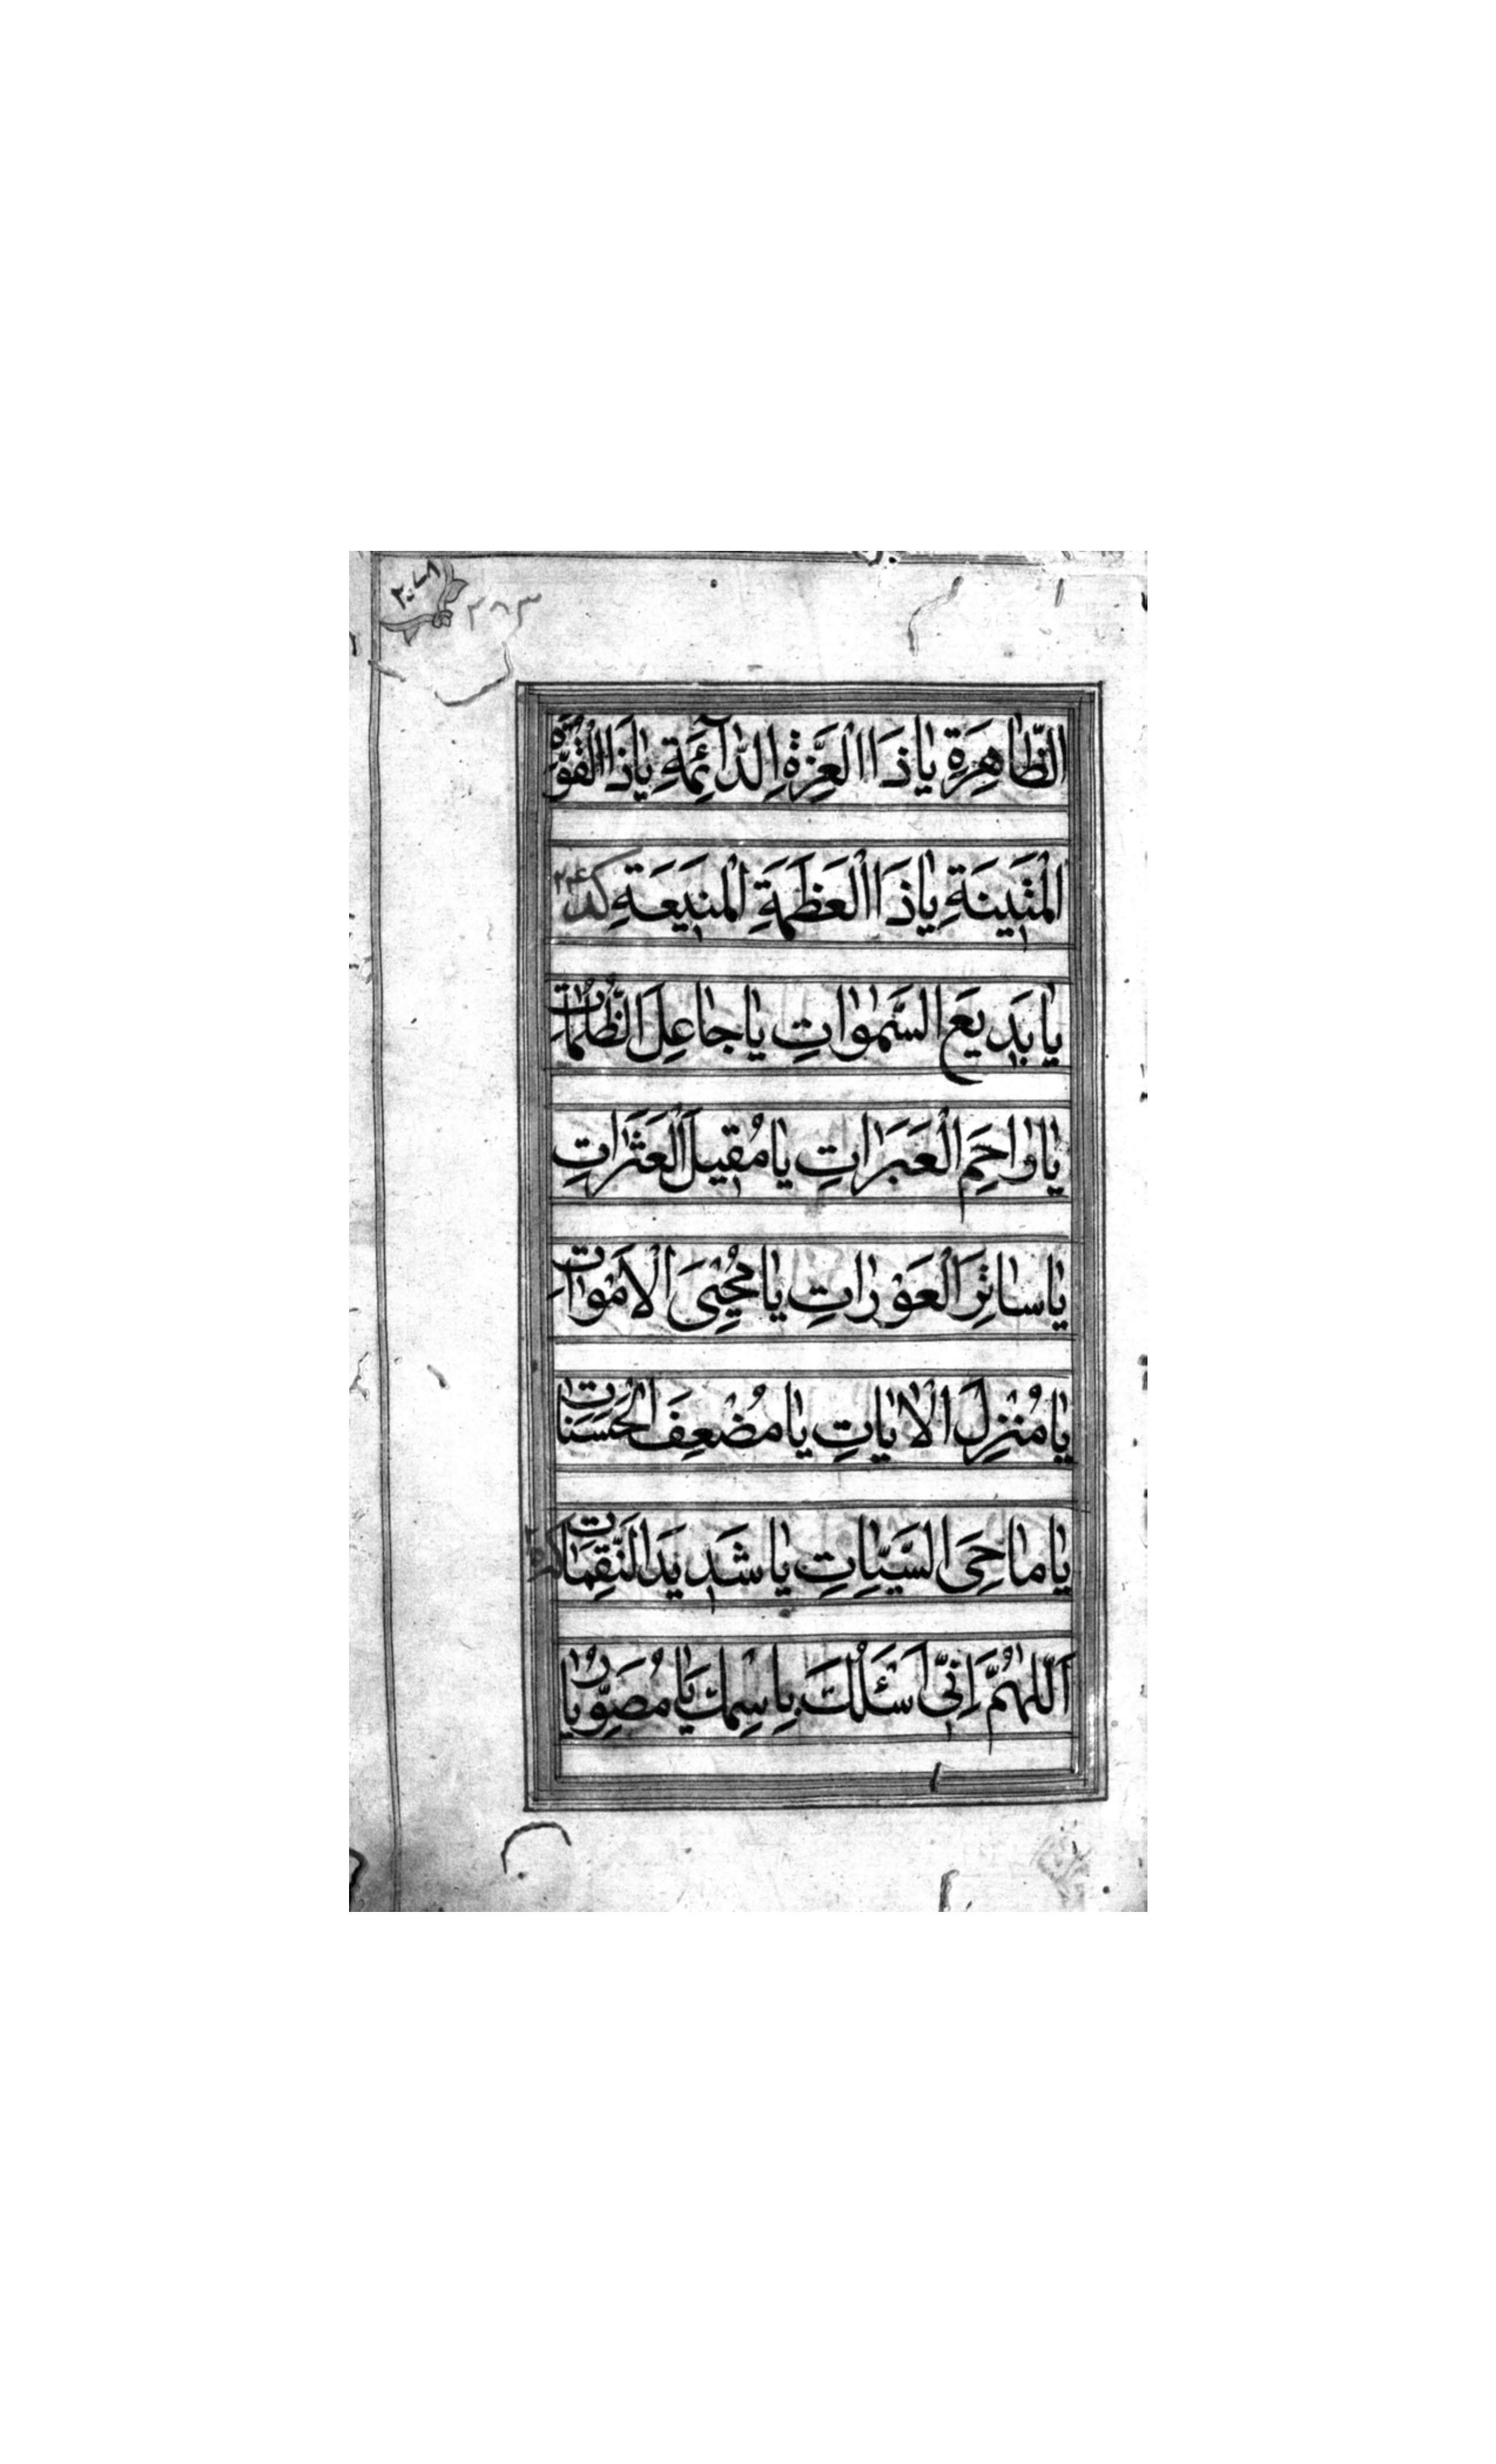 ٢٨٣
الظّاهِرَةِ يا ذَا الْعِزَّةِ الدّآئِمَةِ يا ذَا الْقُوَّةِ
الْمَتينَةِ يا ذَا الْعَظَمَةِ الْمَنيعَةِ كد ٢٤
يا بَديعَ السَّمٰواتِ يا جاعِلَ الظُّلُماتِ
يا راحِمَ الْعَبَراتِ يا مُقيلَ الْعَثَراتِ
يا ساتِرَ الْعَوْراتِ يا مُحْيِىَ الْاَمْواتِ
يا مُنْزِلَ الْاياتِ يا مُضْعِفَ الْحَسَناتِ
يا ماحِىَ السَّيِّاتِ يا شَديدَ النَّقِماتِ
اَللّٰهُمَّ اِنّى اَسْئَلُكَ بِاسْمِكَ يا مُصَوِّرُ يا